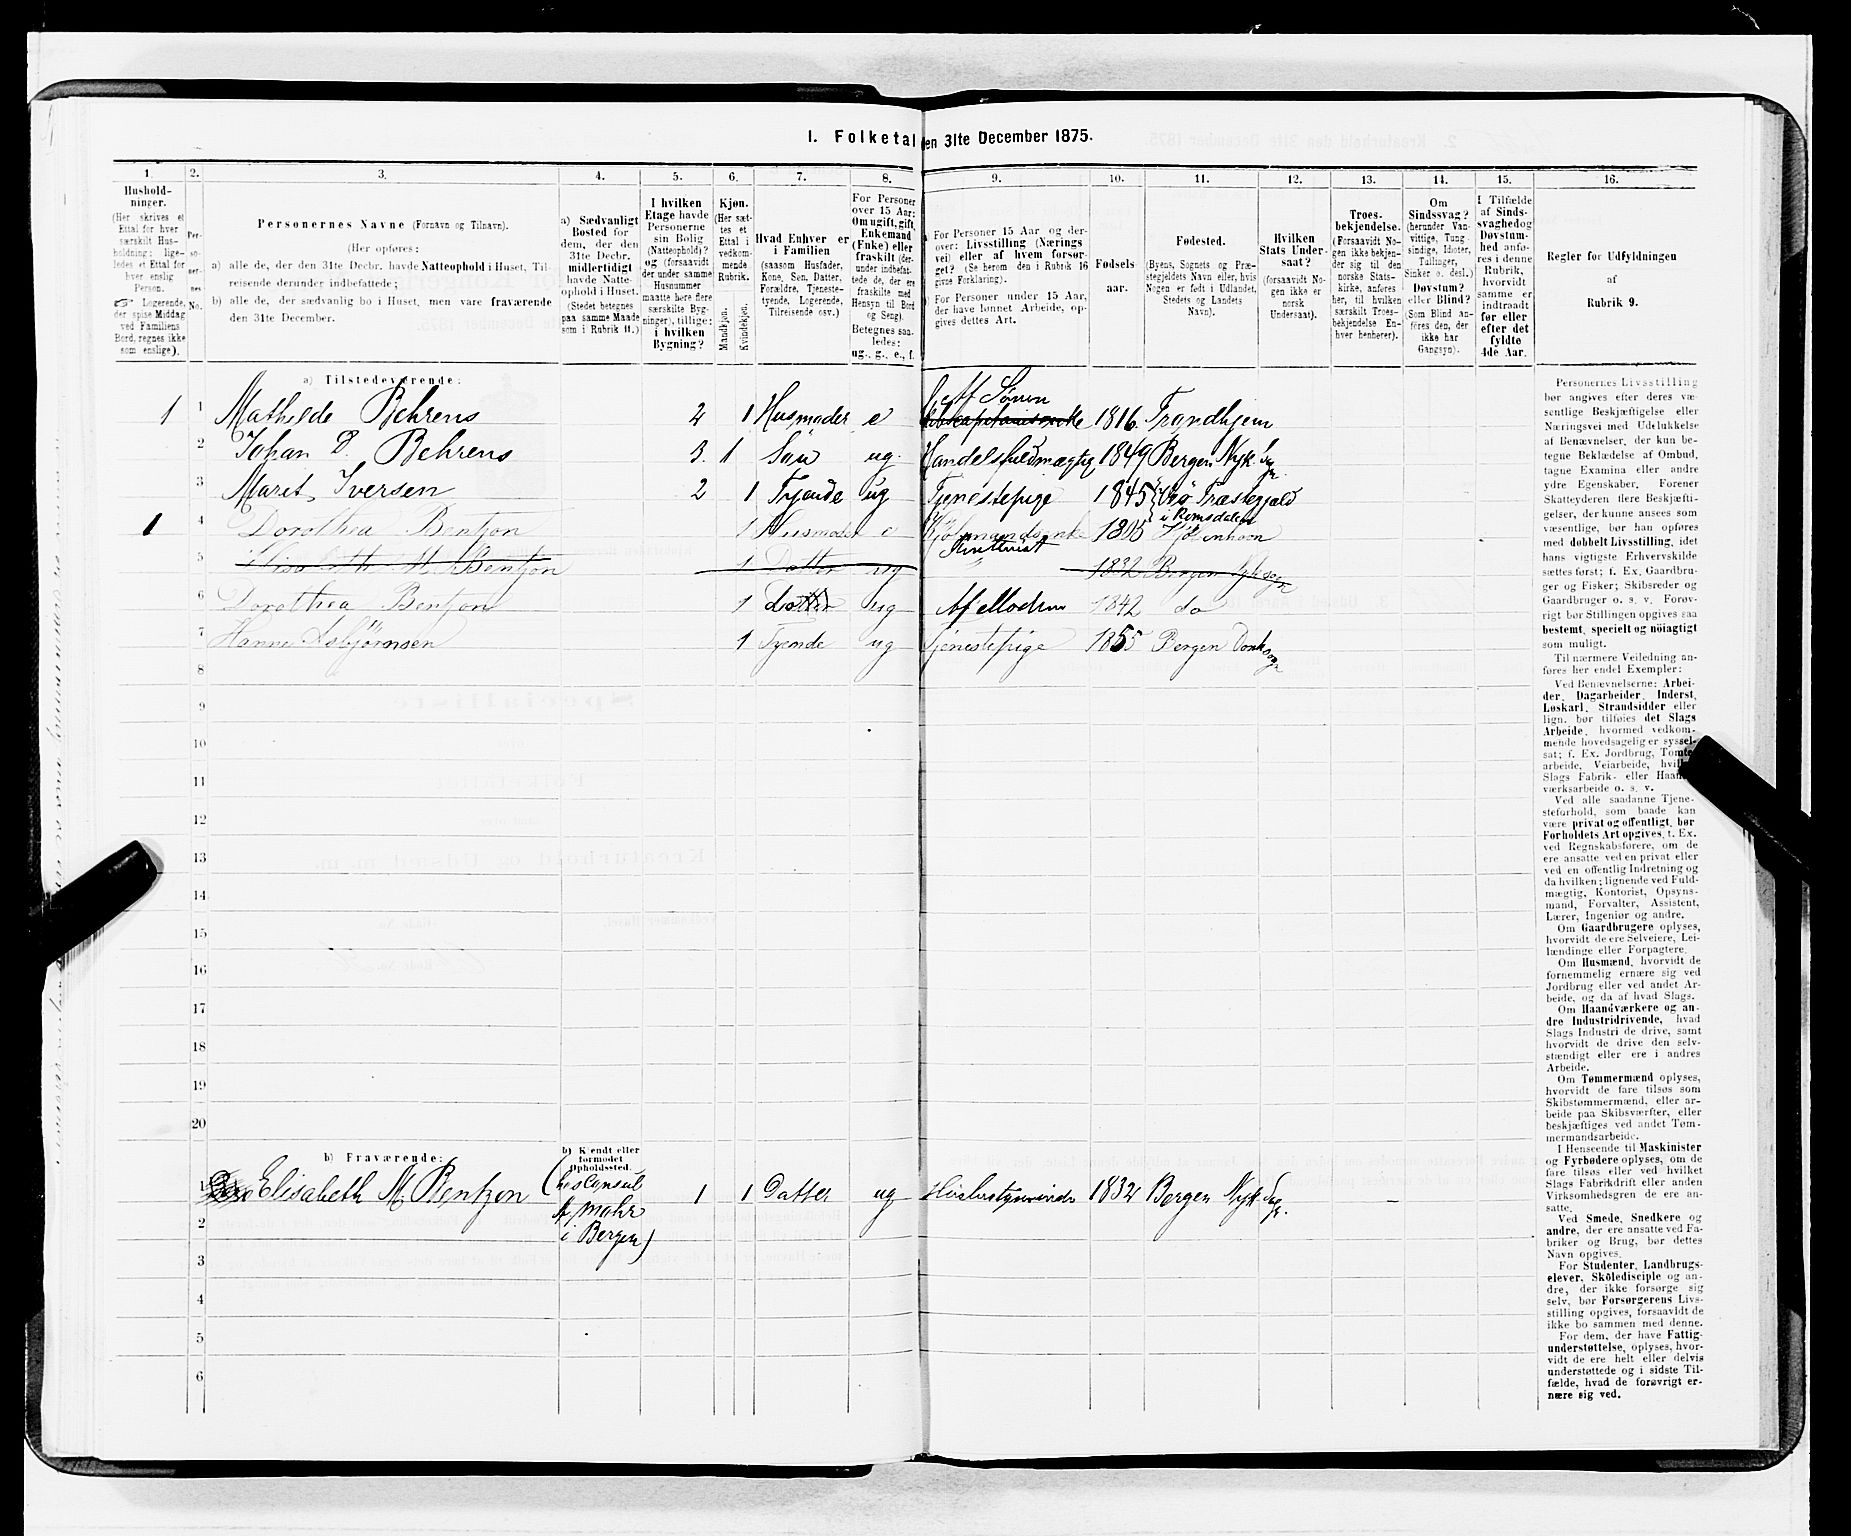 1. Folketal den 31te December 1875.
1. 2. 3. 4. 5. 6. 7. 8. 9. 10. 11. 12. 13. 14. 15. 16.
Hushold-
ninger.
(Her skrives et
Ettal for hver
særskilt Hus-
holdning; lige-
ledes et Ettal for
hver enslig
Person.
☞ Logerende,
der spise Middag
ved Familiens
Bord, regnes ikke
som enslige).
Per-
so-
ner-
nes
No.
Personernes Navne (Fornavn og Tilnavn).
(Her opføres:
a) alle de, der den 31te Decbr. havde Natteophold i Huset, Til-
reisende derunder indbefattede;
b) alle de, der sædvanlig bo i Huset, men vare fraværende
den 31te December.
a) Sædvanligt
Bosted for
dem, der den
31te Decbr.
midlertidigt
havde Natte-
ophold i Huset.
(Stedet betegnes
paa samme Maade
som i Rubrik 11.)
I hvilken
Etage havde
Personerne
sin Bolig
(Natteophold)?
og (forsaavidt
der under samme
Husnummer
maatte høre flere
særskilte Byg-
ninger), tillige:
i hvilken
Bygning?
Kjøn.
(Her sæt-
tes et
Ettal i
vedkom-
mende
Rubrik.
Mandkjøn.
Kvindekjøn.
Hvad Enhver er
i Familien
(saasom Husfader,
Kone, Søn, Datter,
Forældre, Tjeneste-
tyende, Logerende,
Tilreisende osv.)
For Personer
over 15 Aar:
Om ugift, gift,
Enkemand
(Enke) eller
fraskilt (der-
under indbefat-
tede de, der ere
fraskilte med
Hensyn til Bord
og Seng).
Betegnes saa-
ledes:
ug., g., e., f.
For Personer 15 Aar og der-
over: Livsstilling (Nærings
vei) eller af hvem forsør-
get? (Se herom den i Rubrik 16
givne Forklaring).
For Personer under 15 Aar,
der have lønnet Arbeide, op-
gives dettes Art.
Fødsels-
aar.
Fødested.
(Byens, Sognets og Præ-
stegjeldets Navn eller, hvis
Nogen er født i Udlandet,
Stedets og Landets
Navn).
Hvilken
Stats Under-
saat?
(forsaavidt No-
gen ikke er
norsk
Undersaat).
Troes-
bekjendelse.
(Forsaavidt No-
gen ikke bekjen-
der sig til den
norske Stats-
kirke, anføres
her, til hvilken
særskilt Troes-
bekjendelse En-
hver henhører).
Om
Sindssvag?
(herunder Van-
vittige, Tung-
sindige, Idioter,
Tullinger,
Sinker o. desl.)
Døvstum?
eller Blind?
(Som Blind an-
føres den, der
ikke har
Gangsyn).
I Tilfælde
af Sinds-
svaghed og
Døvstum-
hed anfø-
res i denne
Rubrik,
hvorvidt
samme er
indtraadt
før eller
efter det
fyldte
4de Aar.
Regler for Udfyldningen
af
Rubrik 9.
a) Tilstedeværende:
Af Sønen
1 1 Mathilde Behrens 2 1 Husmoder e 1816 Trondhjem
2 Johan D. Behrens 3. 1 Søn ug. Handelsfuldmægtig 1849 Bergen Nyk. Sg.
3 Marit Iversen 2 1 Tyende ug Tjenestepige 1845 Veø Præstegjæld
i Romsdalen
1 4 Dorothea Bentzon 1 Husmoder e Kjøbmandsenke 1805 Kjøbenhavn
5 Elisabeth M. Bentzon 1 Datter ug " 1832 Bergen Nyk sogn
6 Dorothea Bentzon 1 datter ug Af Modren 1842 do
7 Hanne Asbjørnsen 1 Tyende ug Tjenestepige 1855 Bergen Domk sogn
8
9
10
11
12
13
14
15
16
17
18
19
20
b) Fraværende:
b) Kjendt eller
formodet
Opholdssted.
1 Elisabeth M. Bentzon (hos Consul 1 1 Datter ug Huusbestyrerinde 1832 Bergen Nyk Sgn. –
2 A Mohr
i Bergen)
3
4
5
6
Personernes Livsstilling
bør angives efter deres væ-
sentlige Beskjæftigelse eller
Næringsvei med Udelukkelse
af Benævnelser, der kun be-
tegne Beklædelse af Ombud,
tagne Examina eller andre
ydre Egenskaber. Forener
Skatteyderen flere Beskjæfti-
gelser, der kunne ansees som
væsentlige, bør han opføres
med dobbelt Livsstilling, idet
hans vigtigste Erhvervskilde
sættes først; f. Ex. Gaardbru-
ger og Fisker; Skibsreder og
Gaardbruger o. s. v. Forøv-
rigt bør Stillingen opgives saa
bestemt, specielt og nöiagtigt
som muligt.
Til nærmere Veiledning an-
føres her endel Exempler:
Ved Benævnelserne: Arbei-
der, Dagarbeider, Inderst,
Løskarl, Strandsidder eller
lign. bør tilføies det Slags
Arbeide, hvormed vedkom-
mende hovedsagelig er syssel-
sat; f. Ex. Jordbrug, Tomte-
arbeide, Veiarbeide, hvilket
Slags Fabrik- eller Haand-
værksarbeide o. s. v.
Ved alle saadanne Tjene-
steforhold, som baade kan
være privat og offentligt, bør
Forholdets Art opgives, t. Ex.
ved Regnskabsførere, om de
ere ansatte ved en privat eller
ved en offentlig Indretning og
da hvilken; lignende ved Fuld-
mægtig, Kontorist, Opsyns-
mand, Forvalter, Assistent,
Lærer, Ingeniør og andre.
Om Gaardbrugere oplyses,
hvorvidt de ere Selveiere, Lei-
lændinge eller Forpagtere.
Om Husmænd, hvorvidt de
fornemmelig ernære sig ved
Jordbrug eller ved andet Ar-
beide, og da af hvad Slags.
Om Haandværkere og an-
dre Industridrivende, hvad
Slags Industri de drive, samt
hvorvidt de drive den selv-
stændigt eller ere i andres
Arbeide.
Om Tømmermænd oplyses,
hvorvidt de fare tilsøs som
Skibstømmermænd, eller ar-
beide paa Skibsværfter, eller
beskjæftiges ved andet Tøm-
mermandsarbeide.
I Henseende til Maskinister
og Fyrbødere oplyses, om de
fare tilsøs eller ved hvilket
Slags Fabrikdrift eller anden
Virksomhedsgren de ere an-
satte.
Ved Smede, Snedkere og
andre, der ere ansatte ved Fa-
briker og Brug, bør dettes
Navn opgives.
For Studenter, Landbrugs-
elever, Skoledisciple og an-
dre, der ikke forsørge sig
selv, bør Forsørgerens Livs-
stilling opgives, forsaavidt de
ikke bo sammen med denne.
For dem, der have Fattig-
understøttelse, oplyses, hvor-
vidt de ere helt eller delvis
understøttede og i sidste Til-
fælde, hvad de forøvrigt er-
nære sig ved.